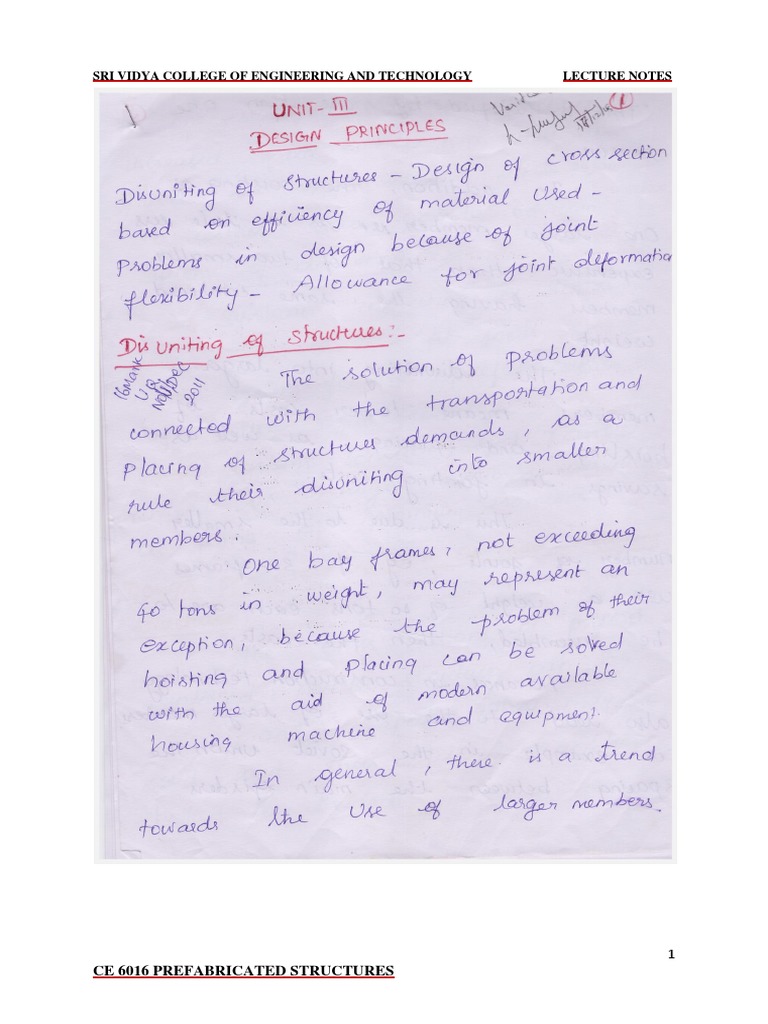 SRI VIDYA COLLEGE OF ENGINEERING AND TECHNOLOGY LECTURE NOTES
1
UNIT-III
1
DESIGN PRINCIPLES
Disuniting of structures - Design of cross section
based on efficiency of material Used -
Problems in design because of joint
flexibility - Allowance for joint deformatio
Disuniting of structures:-
16Mark
U.Q
Nov/Dec
2011
The solution of problems
connected with the transportation and
placing of structures demands, as a
rule their disuniting into smaller
members.
One bay frames, not exceeding
40 tons in weight, may represent an
exception, because the problem of their
hoisting and placing can be solved
with the aid of modern available
housing machine and equipment.
In general, there is a trend
towards the use of larger members.
1
CE 6016 PREFABRICATED STRUCTURES